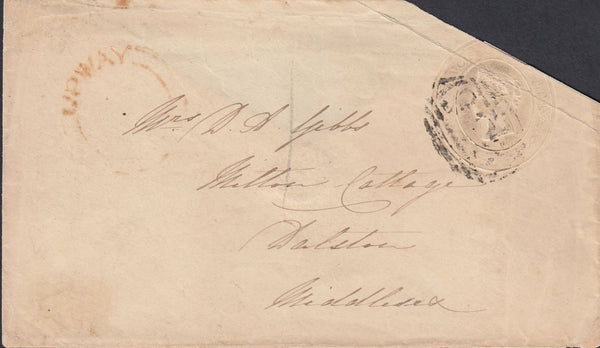 UPWAY
Mrs D. A Gibbs
Milton Cottage
Dalston
Middlesex